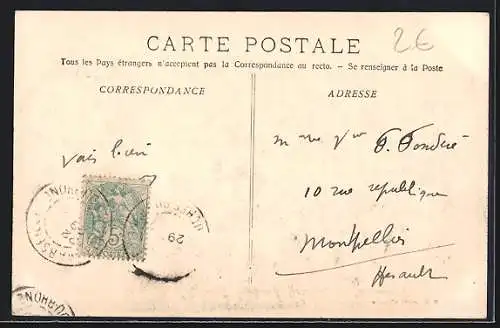 2€
CARTE POSTALE
Tous les Pays étrangers n'acceptent pas la Correspondance au recto. – Se renseigner à la Poste
CORRESPONDANCE
ADRESSE
vais bien
10 rue republique
Montpellier
Herault
29
5